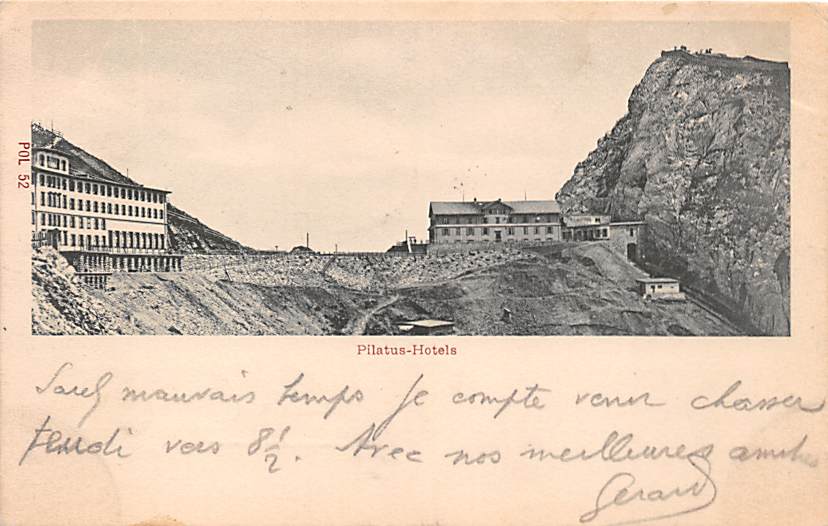 POL 52
Pilatus-Hotels
Sauf mauvais temps je compte venir chasser
Jeudi vers 8 1/2. Avec nos meilleures amitiés
Gérard